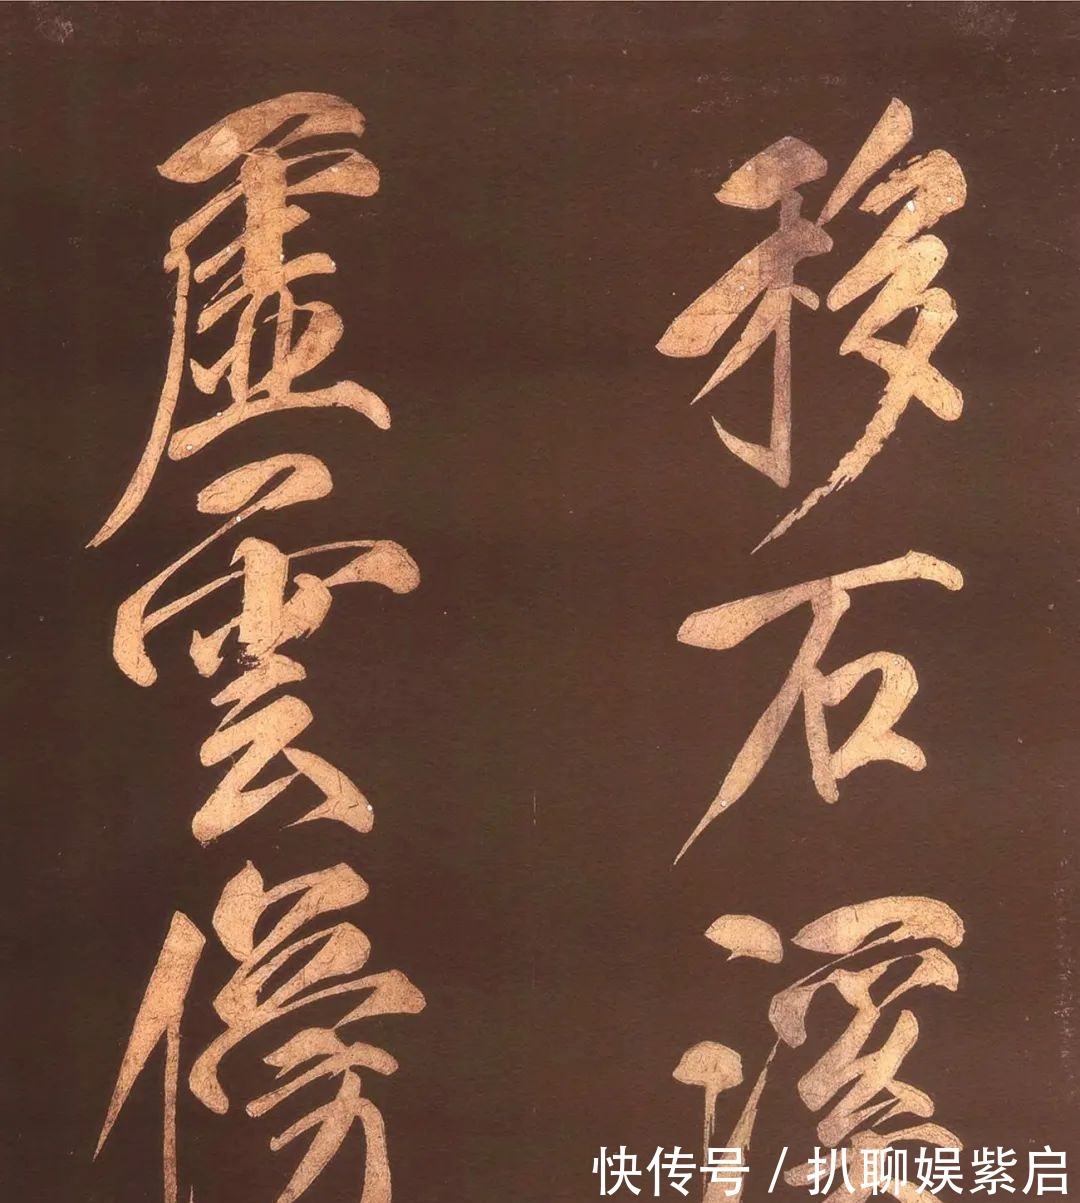 移石溪
虚雲傍
快传号 / 扒聊娱紫启